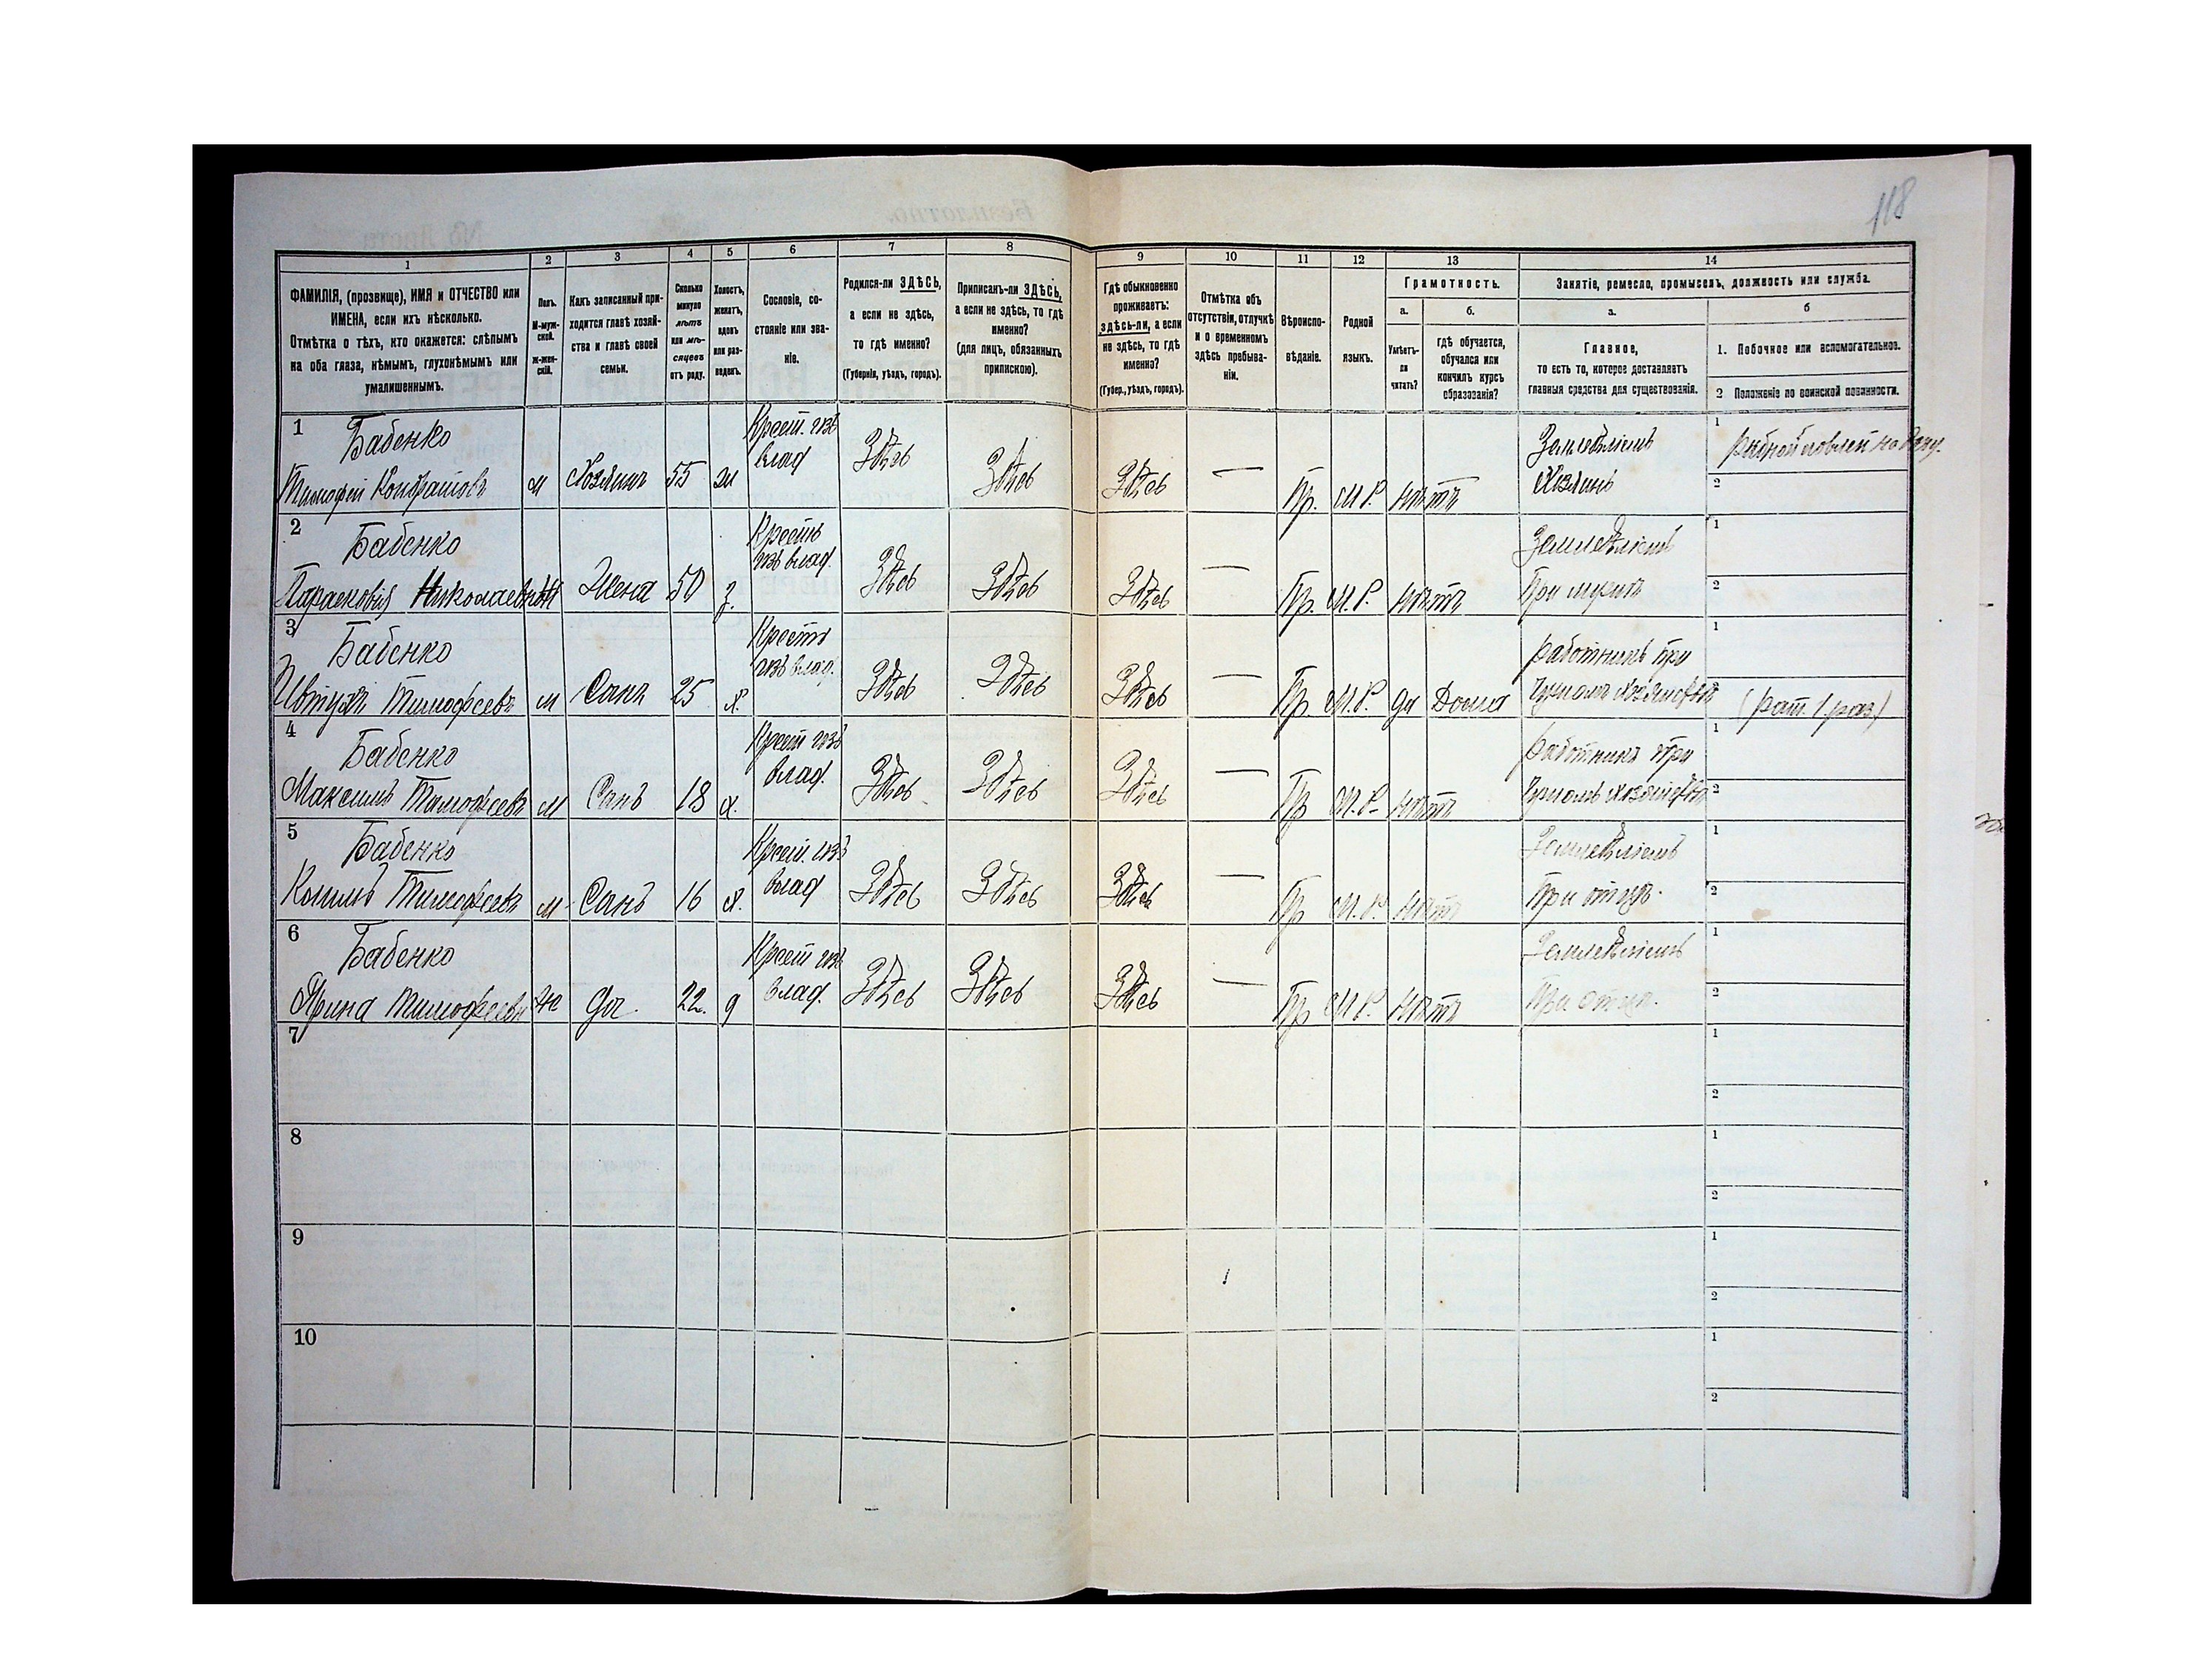 118
1
2
3
4
5
6
7
8
9
10
11
12
13
14
ФАМИЛІЯ, (прозвище), ИМЯ и ОТЧЕСТВО или
ИМЕНА, если ихъ нѣсколько.
Отмѣтка о тѣхъ, кто окажется: слѣпымъ
на оба глаза, нѣмымъ, глухонѣмымъ или
умалишеннымъ.
Полъ.
М-муж-
ской.
Ж-жен-
скій.
Какъ записанный при-
ходится главѣ хозяй-
ства и главѣ своей
семьи.
Сколько
минуло
лѣтъ
или мѣ-
сяцевъ
отъ роду.
Холостъ,
женатъ,
вдовъ
или раз-
веденъ.
Сословіе, со-
стояніе или зва-
ніе.
Родился-ли ЗДѢСЬ,
а если не здѣсь,
то гдѣ именно?
(Губернія, уѣздъ, городъ).
Приписанъ-ли ЗДѢСЬ,
а если не здѣсь, то гдѣ
именно?
(для лицъ, обязанныхъ
припискою).
Гдѣ обыкновенно
проживаетъ:
здѣсь-ли, а если
не здѣсь, то гдѣ
именно?
(Губер., уѣздъ, городъ).
Отмѣтка объ
отсутствіи, отлучкѣ
и о временномъ
здѣсь пребыва-
ніи.
Вѣроиспо-
вѣданіе.
Родной
языкъ.
Грамотность.
а.
Умѣетъ-
ли
читать?
б.
гдѣ обучается,
обучался или
кончилъ курсъ
образованія?
Занятіе, ремесло, промыселъ, должность или служба.
а.
Главное,
то есть то, которое доставляетъ
главныя средства для существованія.
б
1. Побочное или вспомогательное.
2 Положеніе по воинской повинности.
1
Бабенко
Тимофей Кондратовъ
м
Хозяинъ
55
Крест.
влад
Здѣсь
Здѣсь
Здѣсь
—
Пр.
М.Р.
Нѣтъ
Земледѣліемъ
Хозяинъ
1
рыбной ловлей
2
2
Бабенко
Парасковія Николаевна
Жена
50
з.
Крестъ
влад.
Здѣсь
Здѣсь
Здѣсь
—
Пр.
М.Р.
Нѣтъ
Земледѣліемъ
При мужѣ
1
2
3
Бабенко
Ивтухъ Тимофеевъ
м
Сынъ
25
х.
Крестъ
влад.
Здѣсь
Здѣсь
Здѣсь
—
Пр.
М.Р.
да
Дома
работникъ при
1
2
(рат. 1. раз)
4
Бабенко
Максимъ Тимофеевъ
м
Сынъ
18
х.
Крест
влад.
Здѣсь
Здѣсь
Здѣсь
—
Пр
М.Р.
Нѣтъ
работникъ при
1
2
5
Бабенко
Климъ Тимофеевъ
м
Сынъ
16
х.
Крест.
влад
Здѣсь
Здѣсь
Здѣсь
—
Пр
М.Р.
Нѣтъ
Земледѣліемъ
При отцѣ.
1
2
6
Бабенко
Ярина Тимофеевн
ж
Доч.
22.
д
Крест
влад.
Здѣсь
Здѣсь
Здѣсь
—
Пр
М.Р.
Нѣтъ
Земледѣліемъ
При отцѣ.
1
2
7
1
2
8
1
2
9
1
2
10
1
2